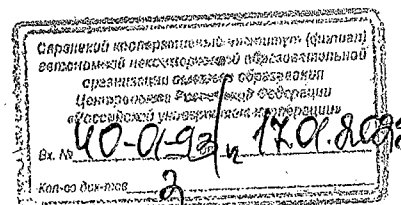 Саранский кооперативный институт (филиал)
автономной некоммерческой образовательной
организации высшего образования
Центросоюза Российской Федерации
«Российский университет кооперации»
Вх. № 40-01-93/ 17.01.
Кол-во док-тов 2